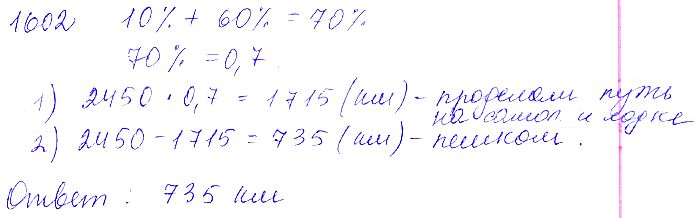 1602 10% + 60% = 70%
70% = 0,7
1) 2450 · 0,7 = 1715 (км) – проделали путь
на самол. и лодке
2) 2450 – 1715 = 735 (км) – пешком.
Ответ: 735 км